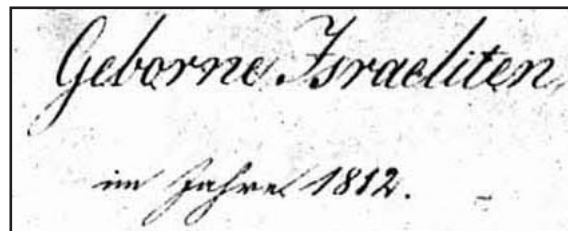 Geborne Israeliten
im Jahre 1812.